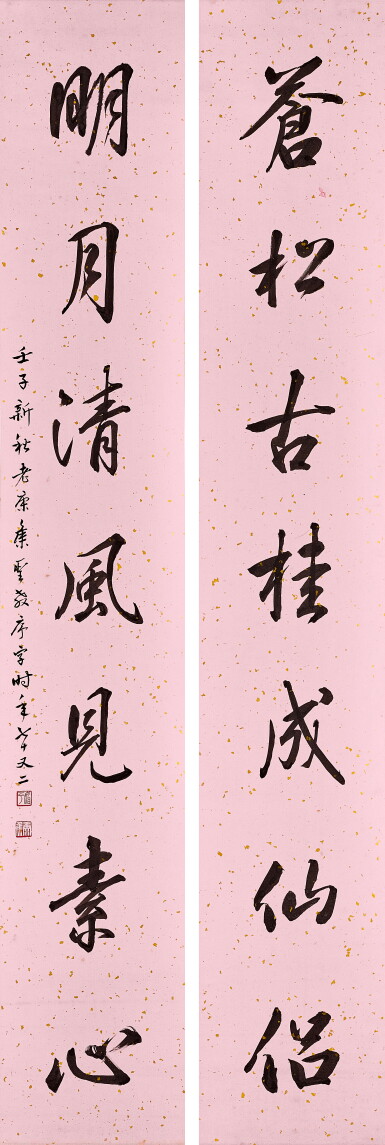 蒼松古桂成仙侶
明月清風見素心
壬子新秋老康集聖教序字时年七十又二